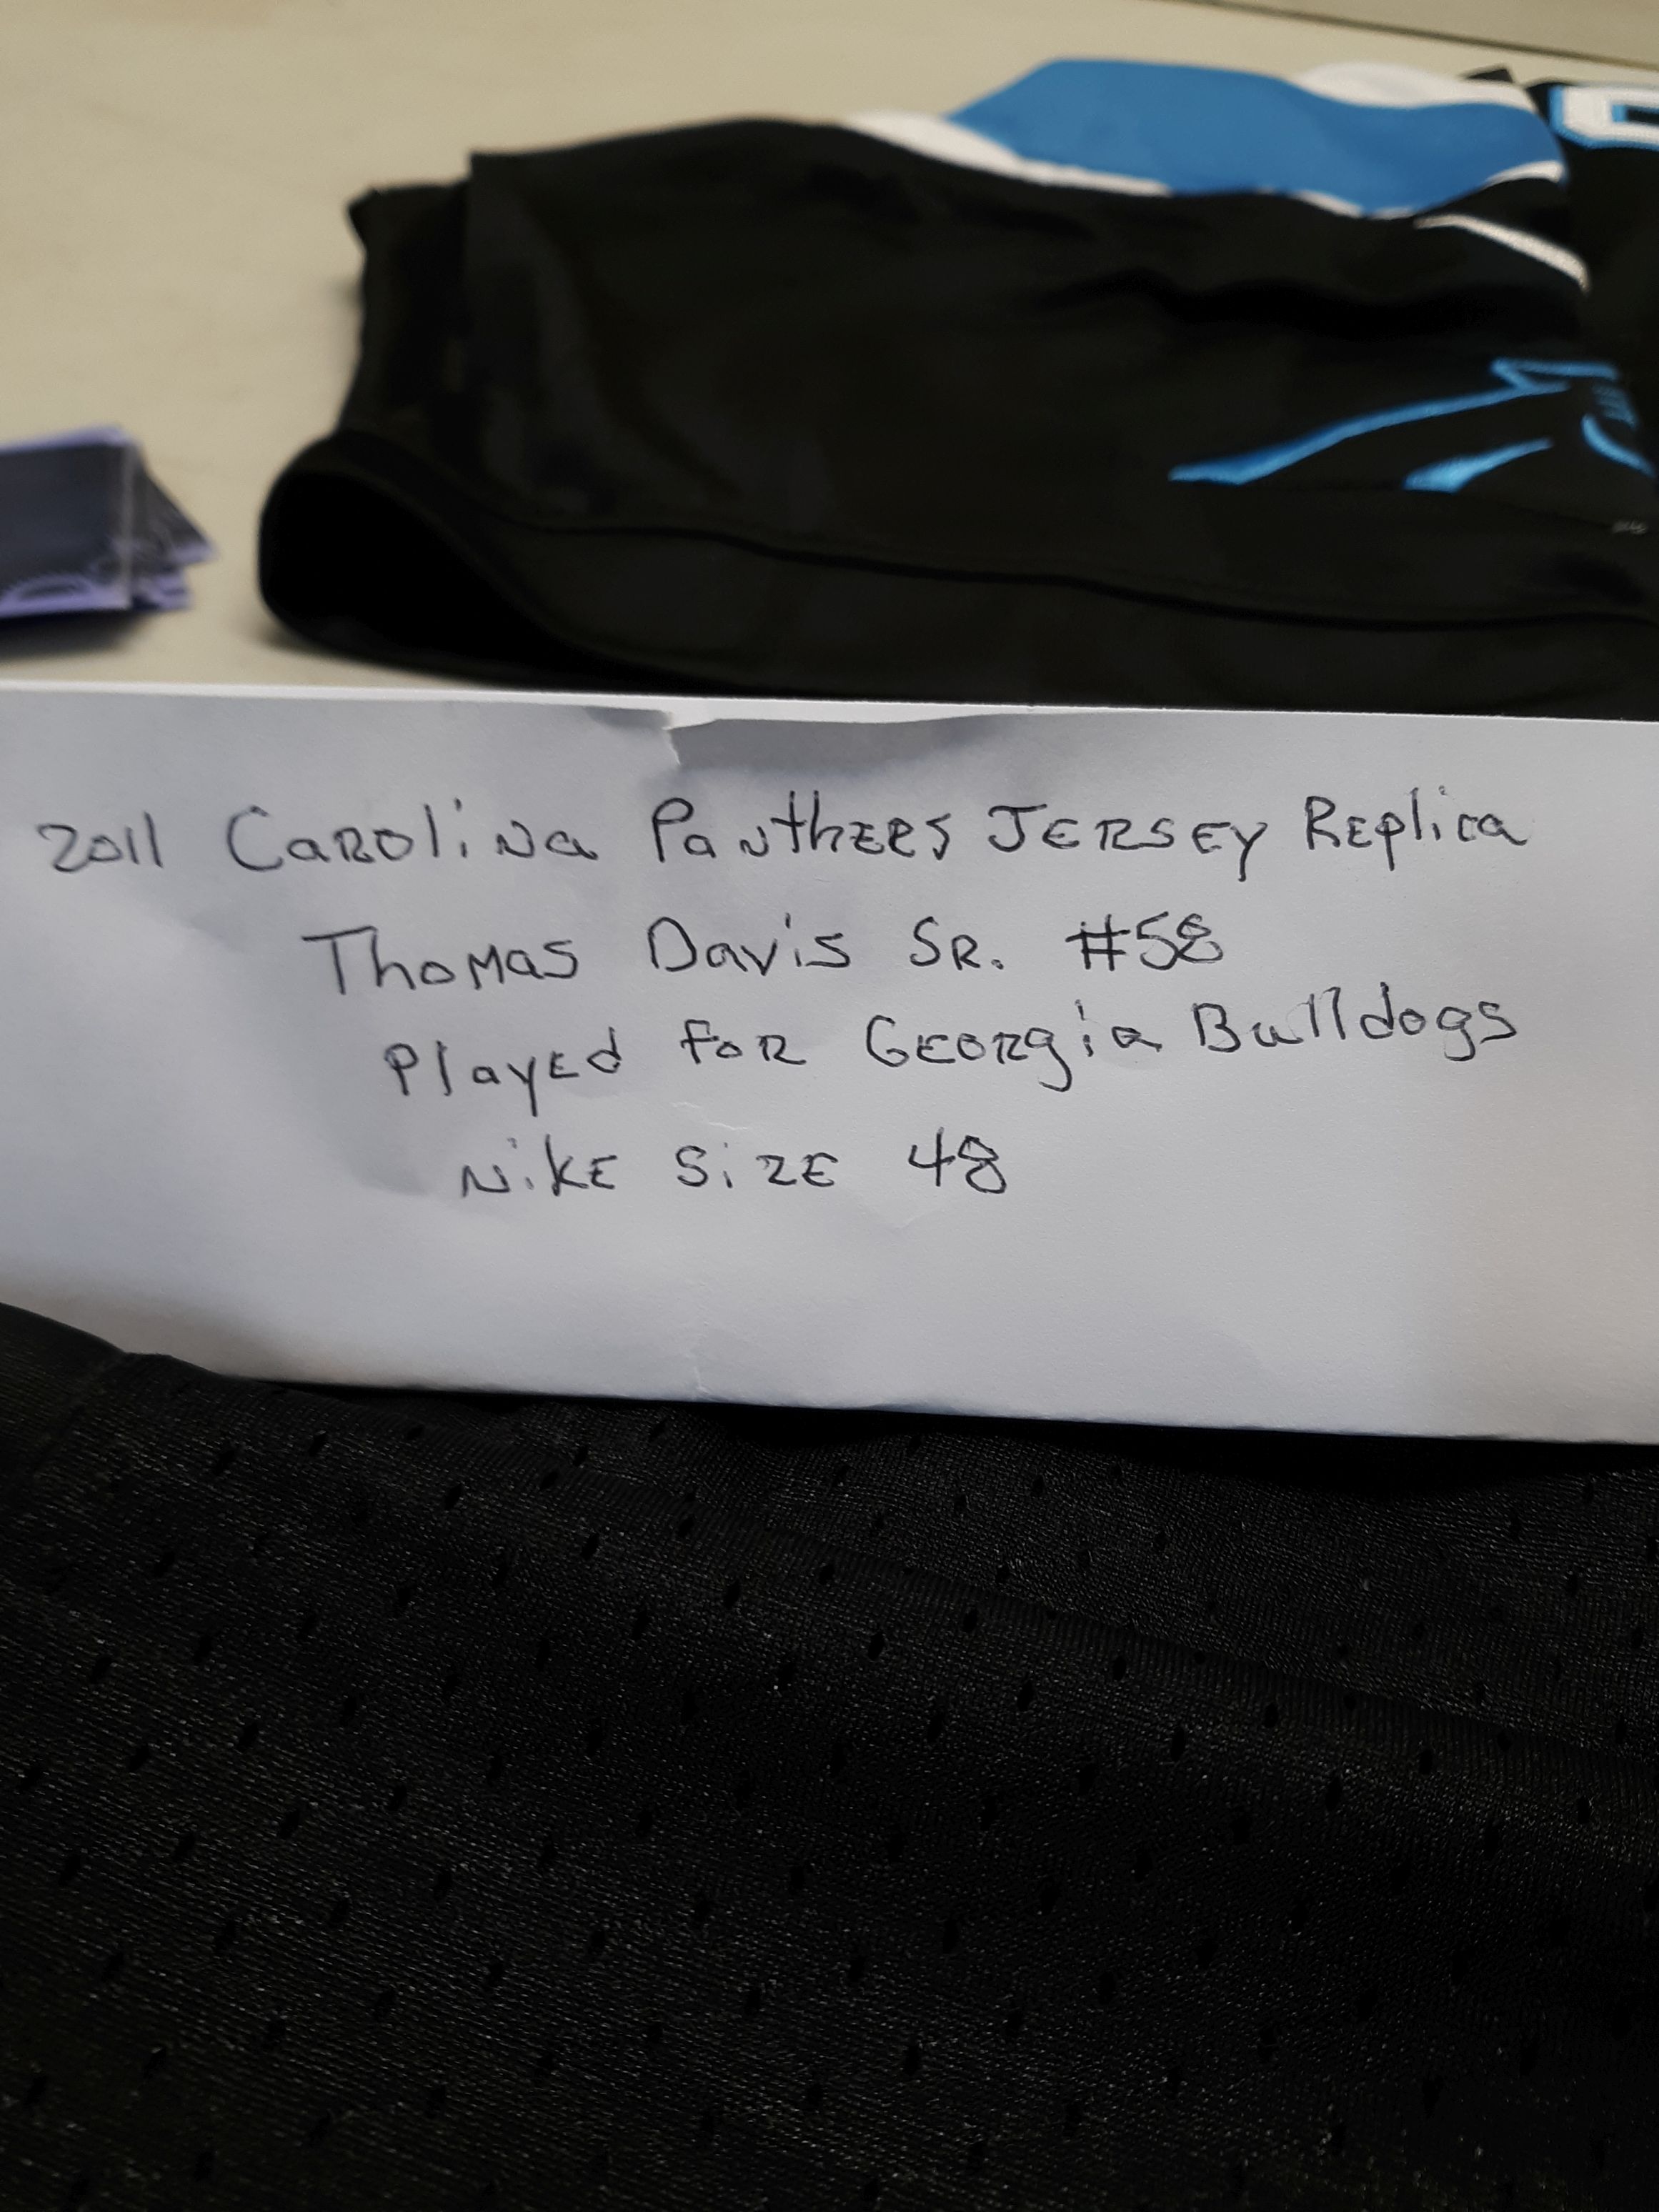 2011 Carolina Panthers Jersey Replica
Thomas Davis Sr. #58
Played for Georgia Bulldogs
Nike Size 48